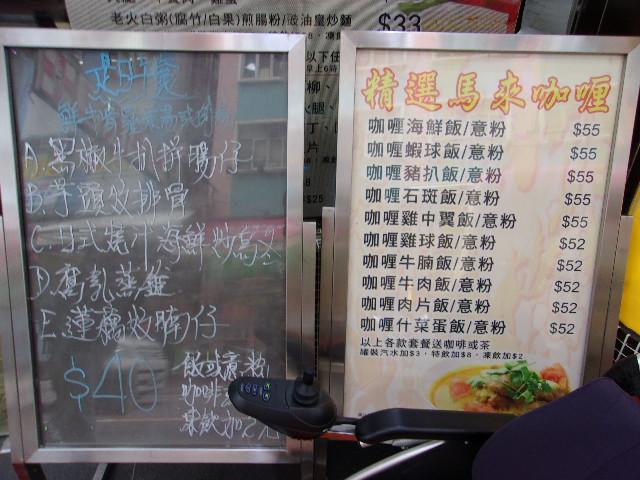 老火白粥(腐竹/白果)煎腸粉/豉油皇炒麵
$33
以下任
$25
是日午餐
A.黑椒牛扒拼腸仔
B.芋頭炆排骨
C.日式燒汁海鮮炒烏冬
D.腐乳蒸雞
E.蓮藕炆腩仔
$40
飯或意粉
咖啡
凍飲加2元
精選馬來咖喱
咖喱海鮮飯/意粉 $55
咖喱蝦球飯/意粉 $55
咖喱豬扒飯/意粉 $55
咖喱石斑飯/意粉 $55
咖喱雞中翼飯/意粉 $55
咖喱雞球飯/意粉 $52
咖喱牛腩飯/意粉 $52
咖喱牛肉飯/意粉 $52
咖喱肉片飯/意粉 $52
咖喱什菜蛋飯/意粉 $52
以上各款套餐送咖啡或茶
罐裝汽水加$3，特飲加$8，凍飲加$2